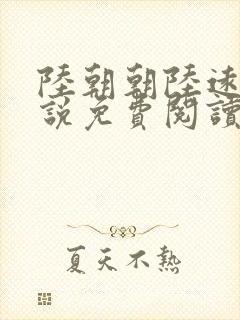 陸朝朝陸遠
說免費閱讀
夏天不熱